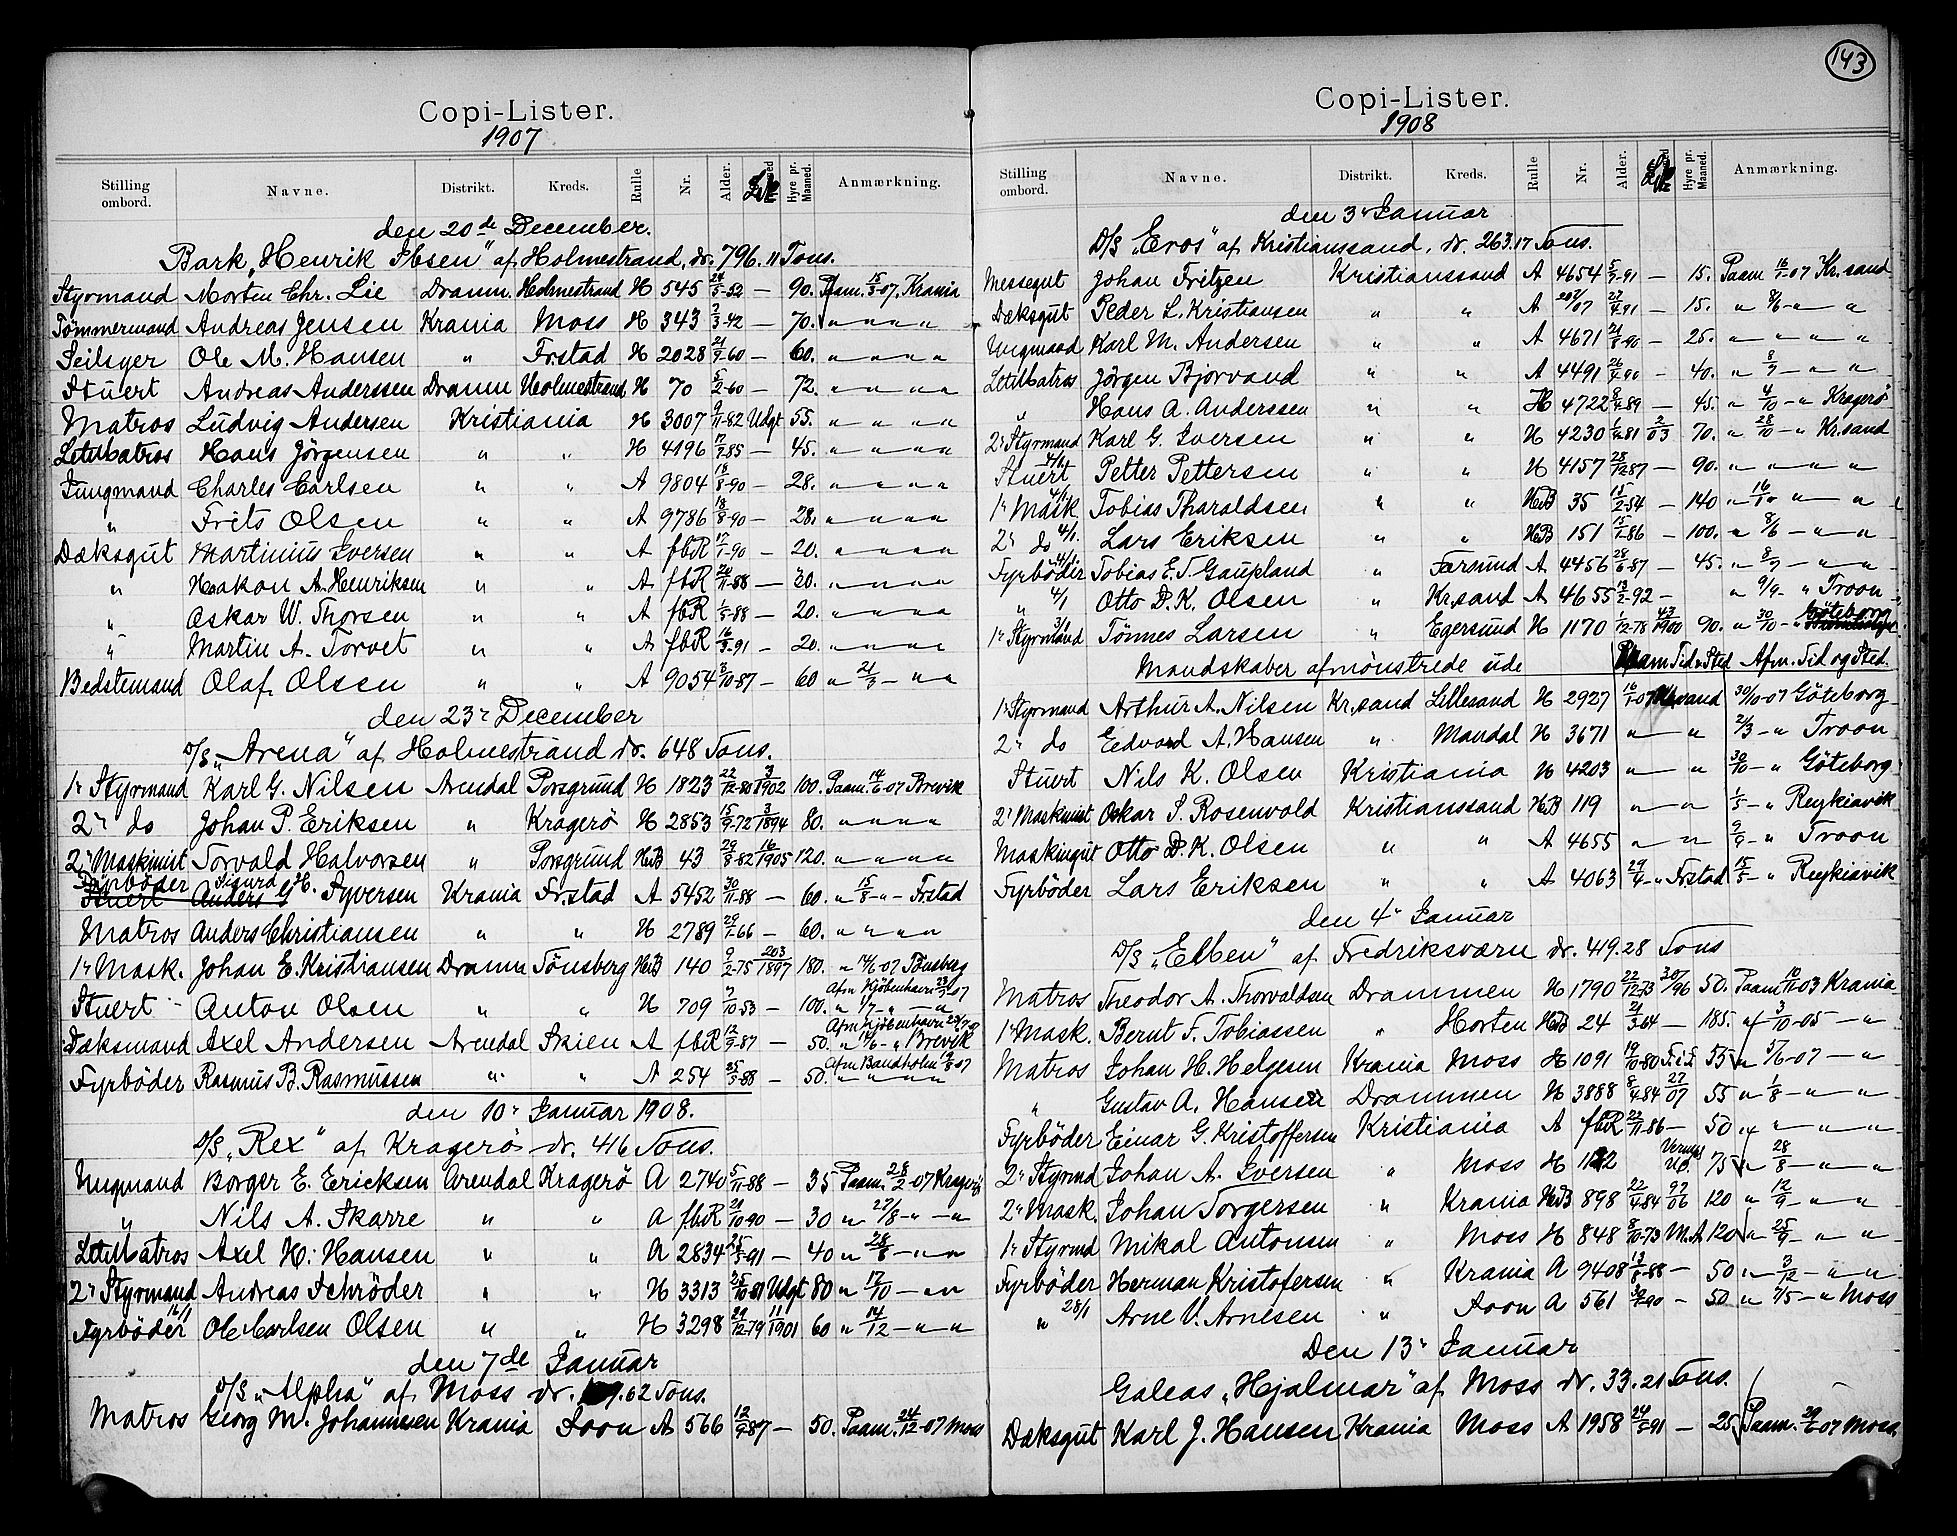 Copi-Lister.
1907
Stilling ombord. Navne. Distrikt. Kreds. Rulle Nr. Alder. Hyre pr. Maaned. Anmærkning.
den 20de December.
Bark „Henrik Ibsen" af Holmestrand, dr. 796.11 Tons.
Styrmand Morten Chr. Lie Dramm. Holmestrand H 545 24/5-52 — 90. Paam. 15/3-07. Krania
Tømmermand Andreas Jensen Krania Moss H 343 2/3-42 — 70. " " " "
Seilsyer Ole M. Hansen " Frstad H 2028 21/9-60 — 60. " " " "
Stuert Andreas Anderssen Dramm Holmestrand H 70 5/2-60 — 72. " " " "
Matros Ludvig Andersen Kristiania H 3007 9/11-82 Udgt 55. " " " "
LetMatros Hans Jörgensen " " H 4196 17/7-85 — 45. " " " "
Jungmand Charles Carlsen " " A 9804 18/8-90 — 28. " " " "
" Frits Olsen " " A 9786 18/8-90 — 28. " " " "
Dæksgut Martinius Iversen " " A fbR 17/1-90 — 20. " " " "
" Haakon A. Henriksen " " A fbR 20/11-88 — 20. " " " "
" Oskar W. Thorsen " " A fbR 1/5-88 — 20. " " " "
" Martin A. Torvet " " A fbR 16/3-91 — 20. " " " "
Bedstemand Olaf Olsen " " A 9054 3/10-87 — 60 " 21/3 — " "
den 23r December
D/S „Arena" af Holmestrand dr. 648 Tons.
1r Styrmand Karl G. Nilsen Arendal Porsgrund H 1823 22/12-80 3/1902 100. Paam. 14/6-07 Brevik
2r do Johan P. Eriksen " Kragerö H 2853 15/9-72 3/1894 80. " " " "
2r Maskinist Torvald Halvorsen " Porsgrund HB 43 29/8-82 16/1905 120. " " " "
Fyrböder Sigurd H. Syversen Krania Fr.stad A 5452 30/11-88 — 60. " 15/8 - " - Frstad
Matros Anders Christiansen " " H 2789 29/1-66 — 60. " " " "
1r Mask. Johan E. Kristiansen Dramm Tönsberg HB 140 9/2-75 203/1897 180. " 14/6-07 Tönsberg
Afm Kjöbenhavn 23/7 07
Stuert Anton Olsen " " H 709 7/10-53 — 100. " 1/7 - " — "
Afm Kjöbenhavn 23/7 07
Dæksmand Axel Andersen Arendal Skien A fbR 12/9-87 — 50. " 14/6 - " Brevik
Afm Bandholm 19/8 07
Fyrböder Rasmus B. Rasmussen " " A 254 25/5-88 — 50. " " " "
den 10r Januar 1908.
D/S „Rex" af Kragerö dr. 416 Tons.
Ungmand Borger E. Ericksen Arendal Kragerö A 2740 5/11-88 — 35 Paam. 28/2-07 Kragerö
" Nils A. Skarre " " A fbR 21/10-90 — 30 " 27/8 - " — "
LetMatros Axel H. Hansen " " A 2834 25/5-91 — 40 " 28/8 — " "
2r Styrmand Andreas Schröder " " H 3313 25/10-81 Udgt 80 " 17/10 — " "
Fyrböder 16/1 Ole Carlsen Olsen " " H 3298 29/12-79 11/1901 60 " 14/12 — " "
den 7de Januar
D/S „Alpha" af Moss dr. .62 Tons.
Matros Georg M. Johannesen Krania Soon A 566 12/9-87 — 50. Paam. 24/12-07 Moss
143
Copi-Lister.
1908
Stilling ombord. Navne. Distrikt. Kreds. Rulle Nr. Alder. Hyre pr. Maaned. Anmærkning.
den 3r Januar
D/S „Eros" af Kristianssand, dr. 263.17 Tons.
Messegut Johan Fritzen Kristianssand A 4654 5/9-91 — 15. Paam 16/1-07 Kr.sand
Dæksgut Peder L. Kristiansen " " A 207/07 27/4-91 — 15. " 8/6 - " "
Ungmand Karl M. Andersen " " A 4671 21/8-90 — 25. " " " "
LetMatros Jörgen Bjorvand " " A 4491 26/4-90 — 40. " 8/7 - " "
" Hans A. Anderssen " " H 4722 8/4-89 — 45. " 4/10 - " Kragerö
2r Styrmand Karl G. Iversen " " H 4230 1/12-81 2/03 70. " 28/10 - " Kr.sand
Stuert 4/1 Petter Pettersen " " H 4157 28/12-87 — 90. " " " "
1r Mask 4/1 Tobias Tharaldsen " " HB 35 15/2-54 — 140 " 16/10 " — "
2r do 4/1 Lars Eriksen " " HB 151 15/1-86 — 100. " 8/6 - " "
Fyrböder 4/1 Tobias E. T. Gaupland " Farsund A 4456 28/6-87 — 45. " 8/7 - " "
" 4/1 Otto D. K. Olsen " Kr.sand A 4655 13/2-92 — " 9/9 - " Troon
1r Styrmand 3/1 Tönnes Larsen " Egersund H 1170 1/12-78 43/1900 90. " 30/10 - " Göteborg
Mandskaber afmönstrede ude Paam Tid & Sted Afm. Tid og Sted.
1r Styrmand Arthur A. Nilsen Kr.sand Lillesand H 2927 16/1-07 Kr.sand 30/10-07 Göteborg
2r do Edvard A. Hansen " Mandal H 3671 " — " 2/3 - " Troon
Stuert Nils K. Olsen Kristiania H 4203 " — " 30/10 - " Göteborg
2r Maskinist Oskar S. Rosenvold Kristianssand HB 119 " — " 1/5 - " Reykiavik
Maskingut Otto D. K. Olsen " " A 4655 " — " 9/9 - " Troon
Fyrböder Lars Eriksen " " A 4063 29/4 - " Frstad 15/5 - " Reykiavik
den 4r Januar
D/S „Elben" af Fredriksværn dr. 419.28 Tons
Matros Theodor A. Thorvaldsen Drammen H 1790 22/12-73 307/96 50. Paam 10/11-03 Krania
1r Mask. Bernt F. Tobiassen " Horten HB 24 21/3-64 — 185. af 3/10-05 — "
Matros Johan H. Helgesen Krania Moss H 1091 19/10-80 F.i.L 55 " 5/6-07 — "
" Gustav A. Hansen Drammen H 3888 8/4-84 27/07 55 " 1/8 — " "
Fyrböder Einar G. Kristoffersen Kristiania A fbR 22/11-86 — 50 " " " "
2r Styrmd Johan A. Iversen " Moss H 1122 75 " 28/8 — " "
2r Mask. Johan Torgersen " Krania HB 898 22/4-84 97/06 120 " 12/9 — " "
1r Styrmd Mikal Antonsen " Moss H 848 8/10-73 M.A 120 " 25/9 — " "
Fyrböder Herman Kristofersen " Krania A 9408 13/8-88 — 50 " 3/12 — " "
" 28/1 Arne V. Arnesen " Soon A 561 30/7-90 — 50 " 7/5 - " Moss
Den 13r Januar
Galeas „Hjalmar" af Moss dr. 33.21 Tons.
Dæksgut Karl J. Hansen Krania Moss A 1958 24/5-91 — 25 Paam. 29/6-07 Moss.